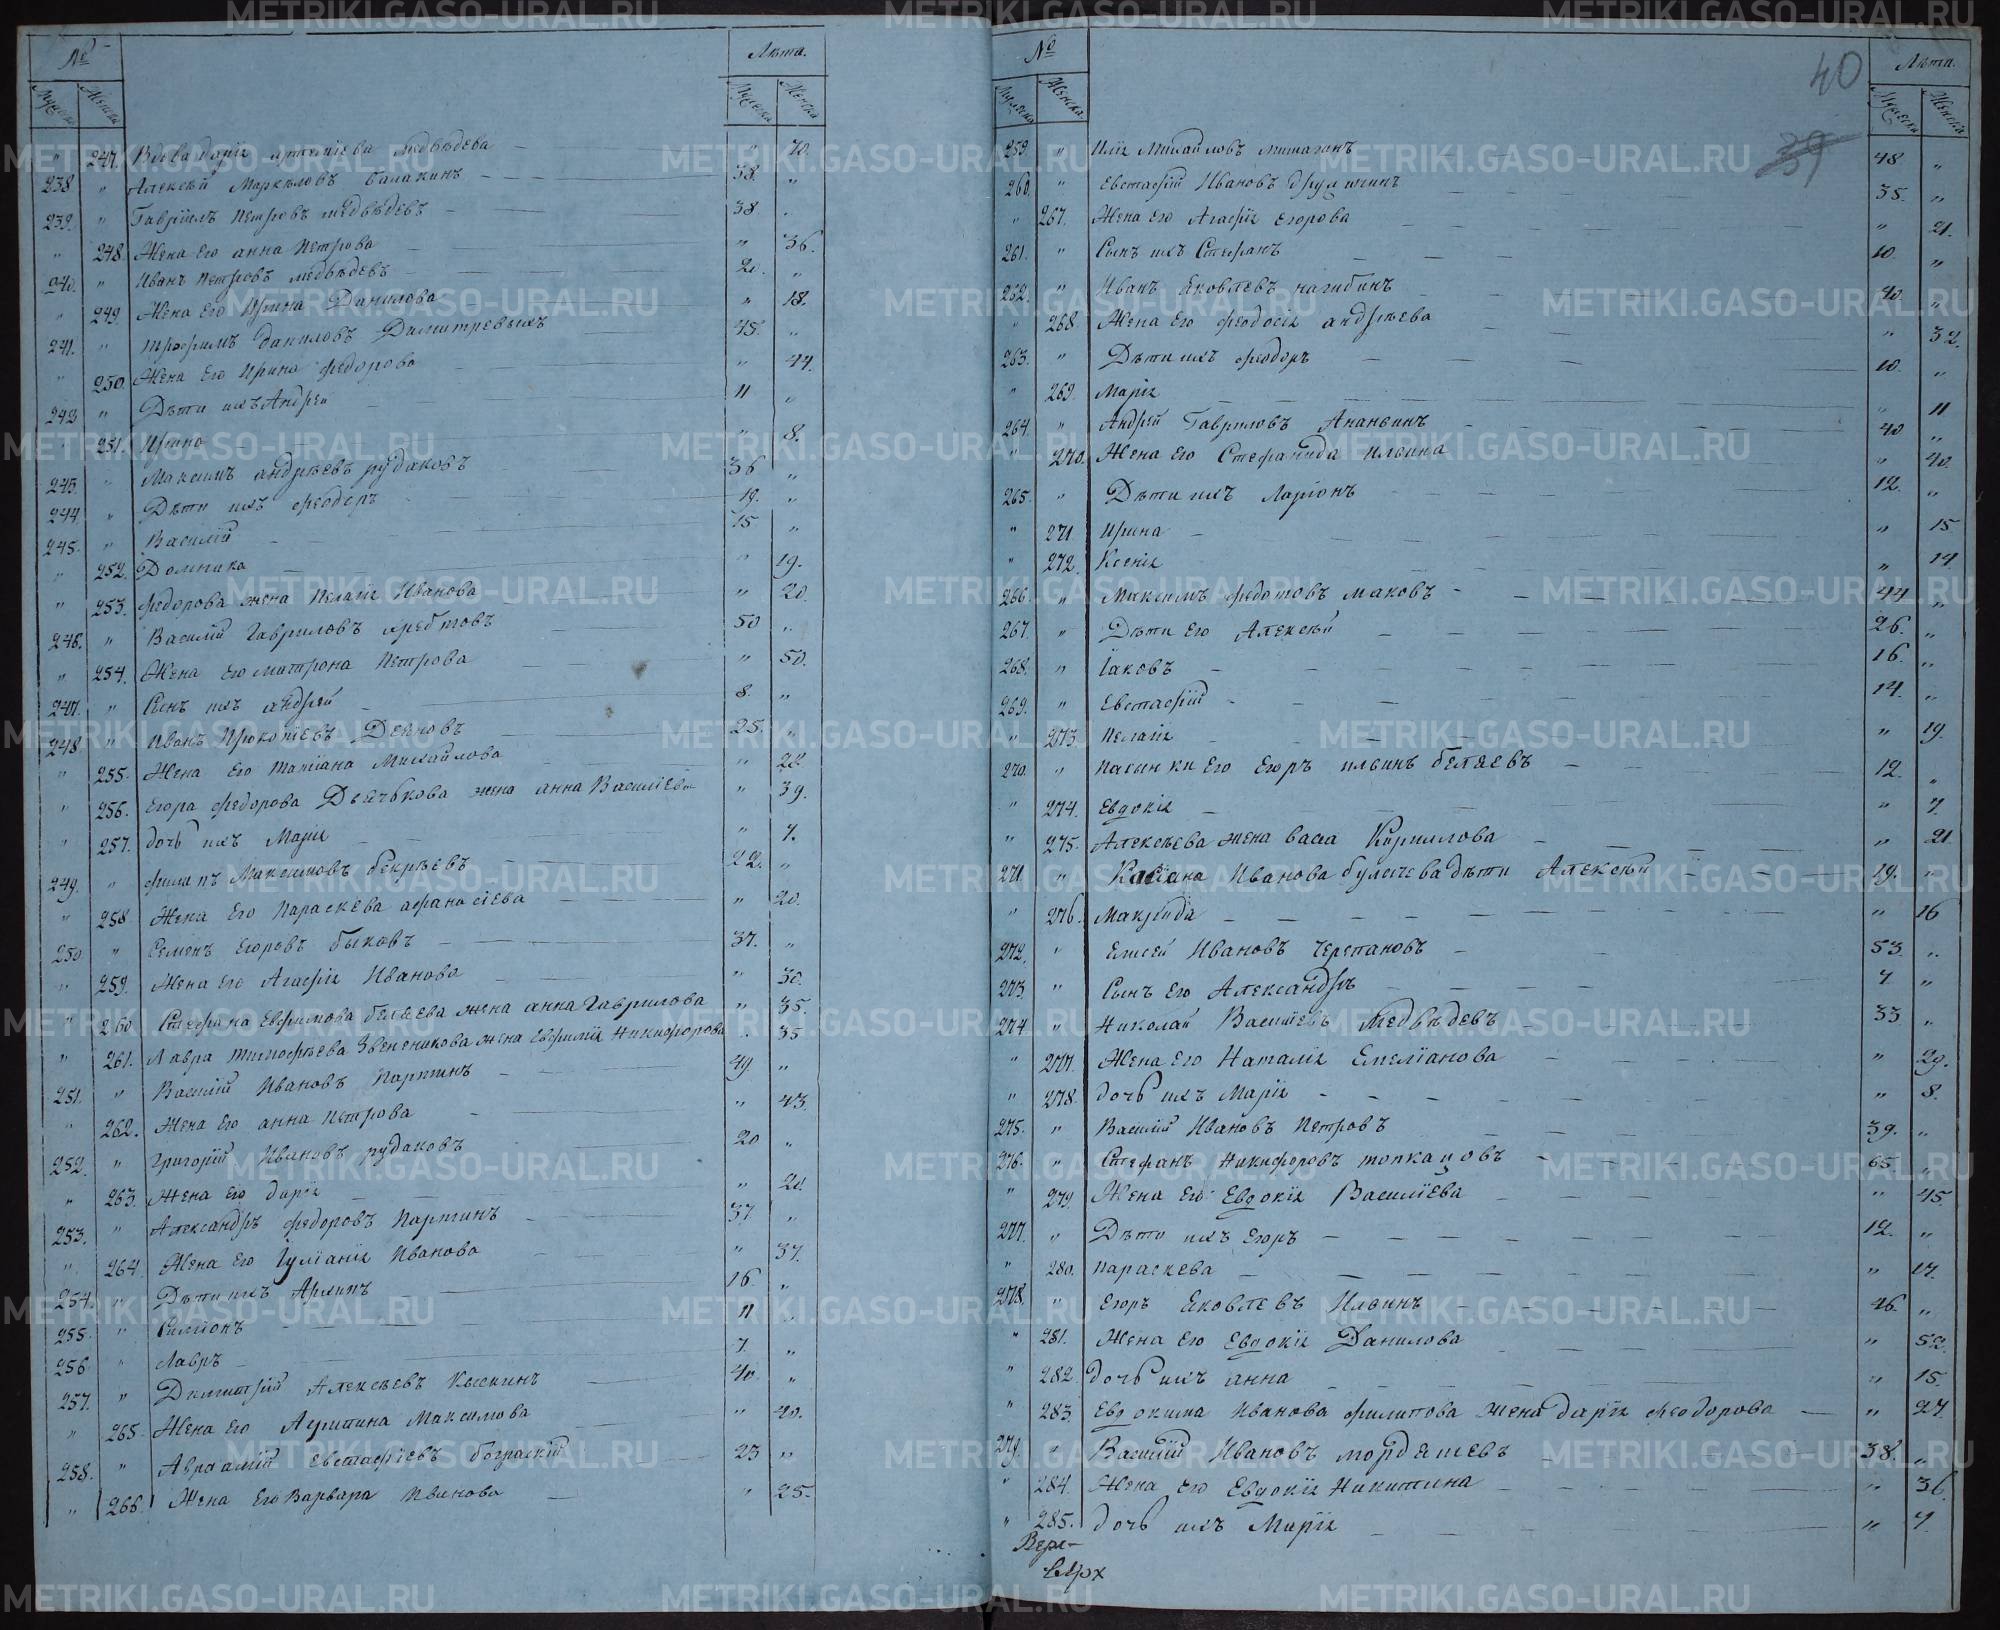 № Лѣта.
Мужеска Женска Мужеска Женска
" 247. Вдова дарія артеміева медвѣдева " 70.
238 " Алексѣй Маркѣловъ балакинъ 58. "
239. " Гавріилъ Петровъ медвѣдевъ 38. "
" 248. Жена Его анна Петрова " 36.
240. " Иванъ Петровъ медвѣдевъ 20. "
" 249. Жена Его Ирина Данилова " 18.
241. " трофимъ даниловъ Димитревыхъ 45. "
" 250. Жена Его Ирина федорова " 44.
242 " Дѣти ихъ Андрей 11 "
" 251. Ирина " 8.
243. " Максимъ андрѣевъ рудаковъ 36 "
244. " Дѣти ихъ феодоръ 19. "
245. " Василій 15 "
" 252. Домника " 19.
" 253. федорова жена Пелагія Иванова " 20.
246. " Василій Гавриловъ хребтовъ 50 "
" 254. Жена его матрона Петрова " 50.
247. " Сынъ ихъ андрей 8. "
248. " Иванъ Прокопіевъ Деяновъ 25. "
" 255. Жена Его татіана Михайлова " 22
" 256. Егора федорова Деячькова жена анна Василіева " 39.
" 257. дочь ихъ Марія " 7.
249. " филипъ Максимовъ бекрѣевъ 22. "
" 258 Жена Его Параскева афанасіева " 20.
250 " Семенъ Егоровъ быковъ 37. "
" 259. Жена Его Агафія Иванова " 30.
" 260 Стефана Евфимова беляева жена анна Гаврилова " 35.
" 261. Лавра тимофѣева Звеченикова жена Евфимія Никифорова " 35.
251. " Василій Ивановъ Паршинъ 49. "
" 262. Жена Его анна Петрова " 43.
252. " Григорій Ивановъ рудаковъ 20 "
" 263. Жена Его дарія " 20.
253. " Александръ федоровъ Паршинъ 37 "
" 264. Жена Его Іуліанія Иванова " 37.
254. " Дѣти ихъ Архипъ 16. "
255. " Симіонъ 11 "
256 " Лавръ 7. "
257. " Димитрій Алексѣевъ Квскинъ 40. "
" 265. Жена Его Агрипина Максимова " 40.
258. " Авраамій Евстафіевъ бограскій 23 "
" 266. Жена Его Варвара Иванова " 25.
40
39
№ Лѣта.
Мужеска Женска Мужеска Женска
259. " Илія Михайловъ мишагинъ 48 "
260. " Евстафій Ивановъ дружининъ 35. "
" 267. Жена Его Агафія Егорова " 21.
261. " Сынъ ихъ Стефанъ 10. "
262. " Иванъ Яковлевъ нагибинъ 40. "
" 268. Жена Его феодосія андрѣева " 32.
263. " Дѣти ихъ феодоръ 10. "
" 269. Марія " 11
264. " Андрей Гавриловъ Ананьинъ 40 "
" 270. Жена Его Стефанида Ильина " 40.
265. " Дѣти ихъ Ларіонъ 12. "
" 271 Ирина " 15
" 272. Ксенія " 14.
266. " Максимъ федотовъ маковъ 44 "
267. " Дѣти Его Алексѣй 26. "
268. " Іаковъ 16. "
269. " Евстафій 14. "
" 273. Пелагія " 19.
270. " пасынки Его Егоръ ильинъ беляевъ 12. "
" 274. Евдокія " 7.
" 275. Алексѣева жена васса Кирилова " 21.
271 " Касіана Иванова булычева дѣти Алексѣй 19. "
" 276. Макрида " 16
272. " Елисей Ивановъ Черепановъ 53. "
273. " Сынъ Его Александръ 7 "
274 " Николай Василіевъ Медвѣдевъ 33. "
" 277. Жена Его Наталія Емеліанова " 29.
" 278. дочь ихъ Марія " 8.
275. " Василій Ивановъ Петровъ 39. "
276. " Стефанъ Никифоровъ толкачовъ 65. "
" 279. Жена Его Евдокія Василіева " 45.
277. " Дѣти ихъ Егоръ 12. "
" 280. параскева " 17.
278. " Егоръ Яковлевъ Ильинъ 46. "
" 281. Жена Его Евдокія Данилова " 52.
" 282. дочь ихъ анна " 15.
" 283. Евдокима Иванова филипова жена дарія феодорова " 27.
279. " Василій Ивановъ мордяшевъ 38. "
" 284. Жена Его Евдокія Никитина " 36
" 285. дочь ихъ Марія " 7
METRIKI.GASO-URAL.RU